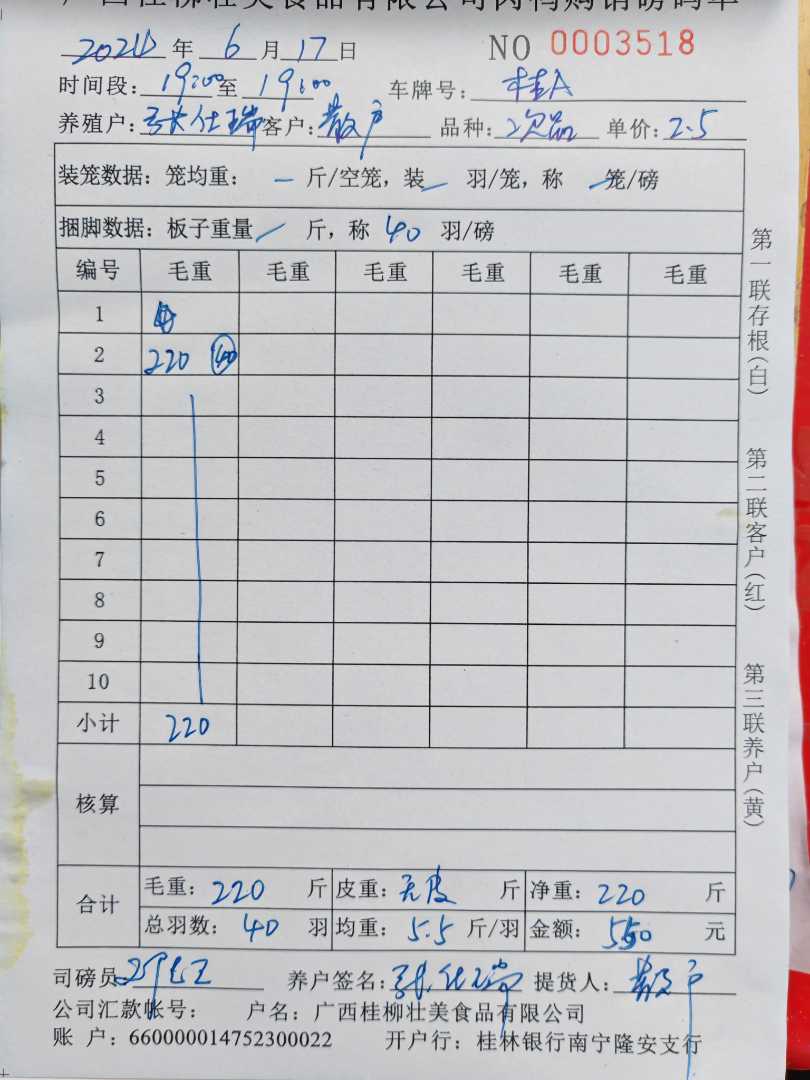 广西桂柳壮美食品有限公司肉鸭购销磅码单
年 6 月 17 日 NO 0003518
时间段: 至 车牌号: 桂A
养殖户: 张仕瑞 客户: 散户 品种: 次品 单价: 2.5
装笼数据: 笼均重: 一 斤/空笼, 装 羽/笼, 称 笼/磅
捆脚数据: 板子重量 / 斤, 称 40 羽/磅
编号 毛重 毛重 毛重 毛重 毛重 毛重
1
2 220 40
3
4
5
6
7
8
9
10
小计 220
核算
合计 毛重: 220 斤 皮重: 无皮 斤 净重: 220 斤
总羽数: 40 羽 均重: 5.5 斤/羽 金额: 550 元
司磅员 养户签名: 张仕瑞 提货人: 散户
公司汇款帐号: 户名: 广西桂柳壮美食品有限公司
账 户: 660000014752300022 开户行: 桂林银行南宁隆安支行
第一联存根(白) 第二联客户(红) 第三联养户(黄)